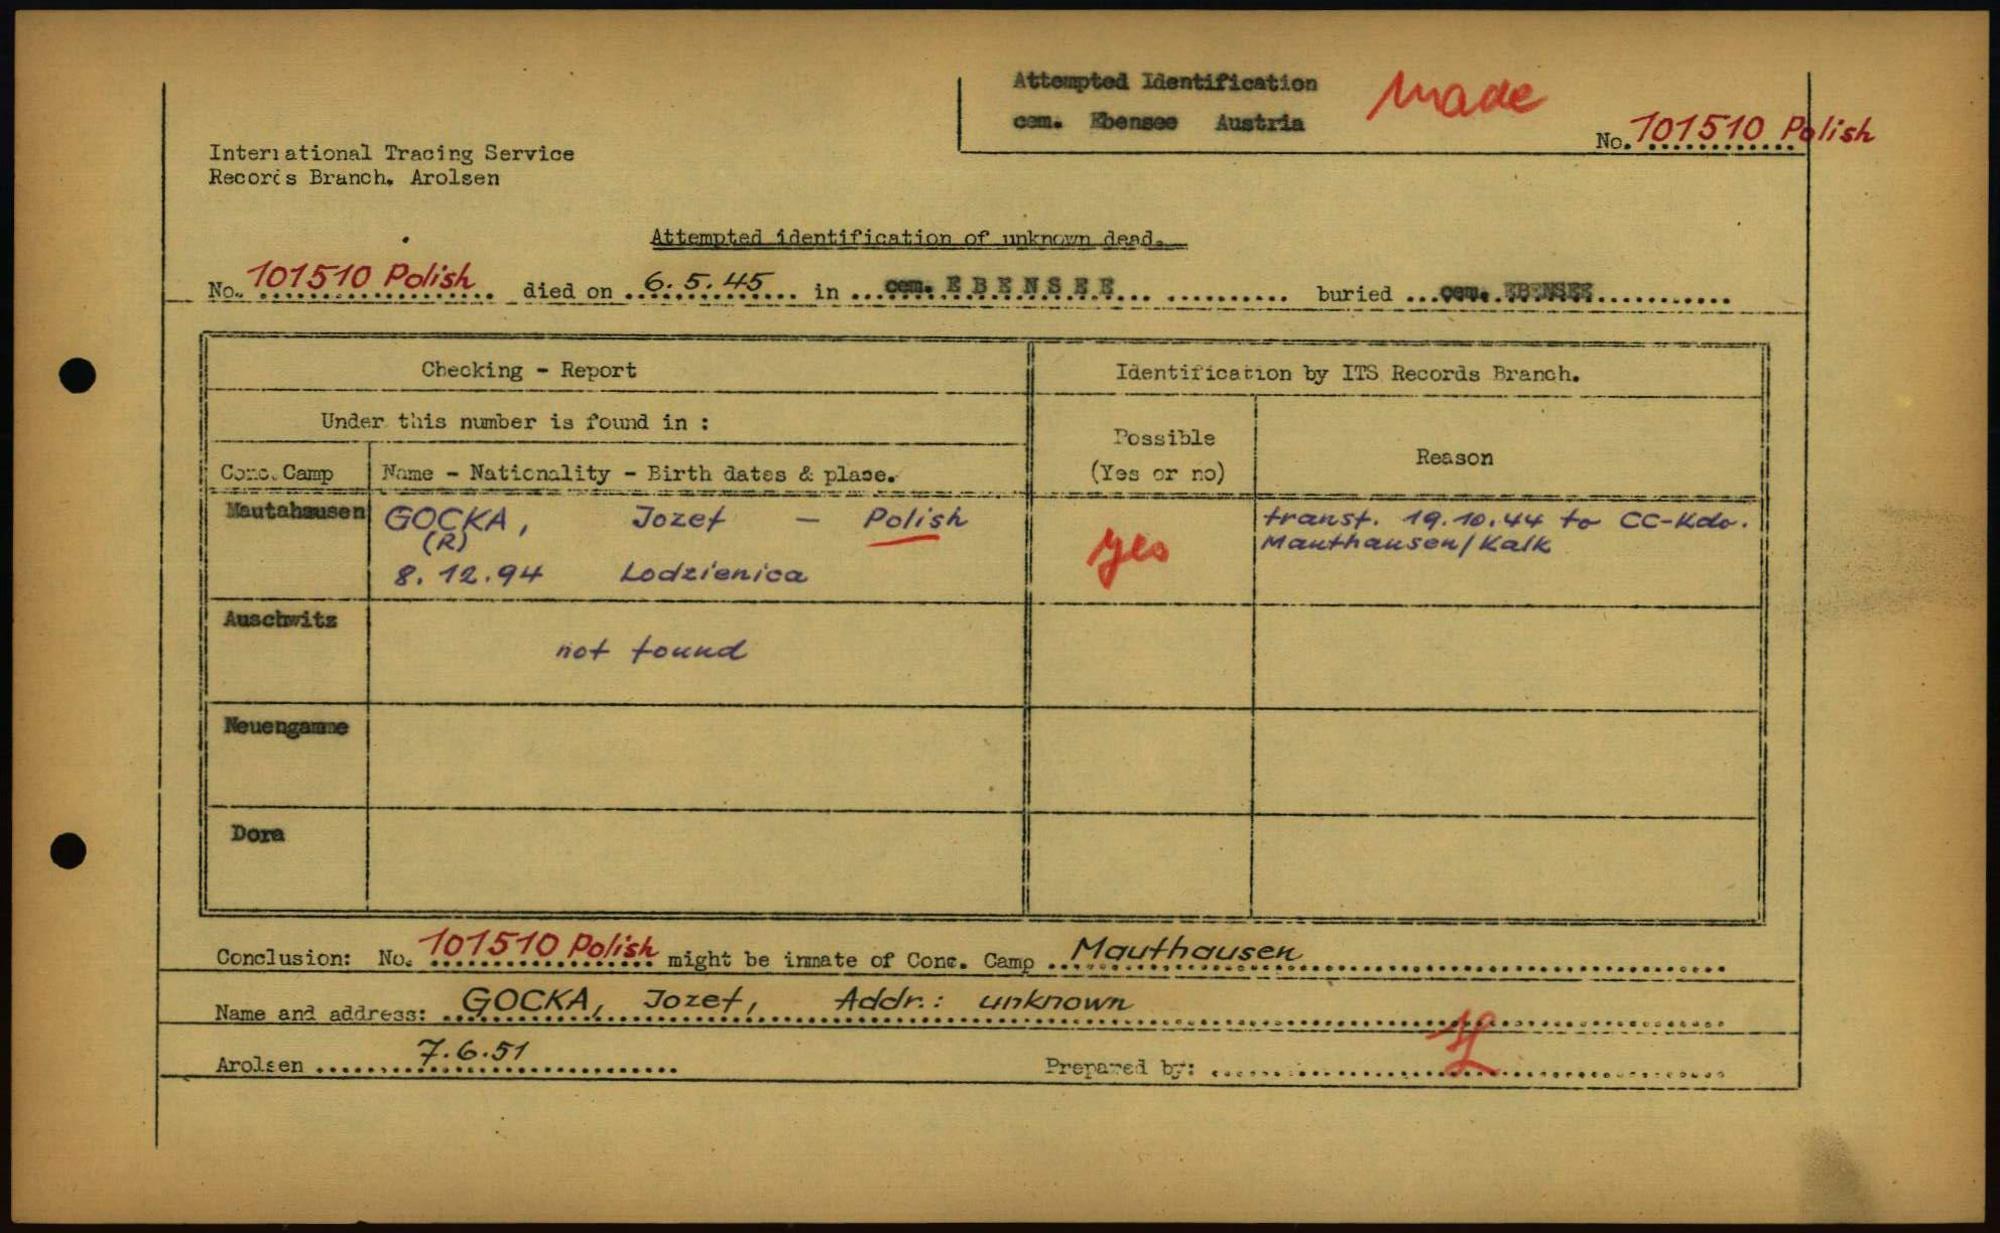 Attempted Identification made
cem. Ebensee Austria
No. 101510 Polish
International Tracing Service
Records Branch. Arolsen
Attempted identification of unknown dead.
No. 101510 Polish died on 6.5.45 in cem. EBENSEE buried cem. EBENSEE
Checking - Report
Identification by ITS Records Branch.
Under this number is found in :
Possible
(Yes or no)
Reason
Conc. Camp
Name - Nationality - Birth dates & place.
Mautahausen
GOCKA, Jozef - Polish
(R)
8.12.94 Lodzienica
yes
transf. 19.10.44 to CC-Kdo.
Mauthausen/Kalk
Auschwitz
not found
Neuengamme
Dora
Conclusion: No. 101510 Polish might be inmate of Conc. Camp Mauthausen
Name and address: GOCKA, Jozef, Addr.: unknown
Arolsen 7.6.51
Prepared by: